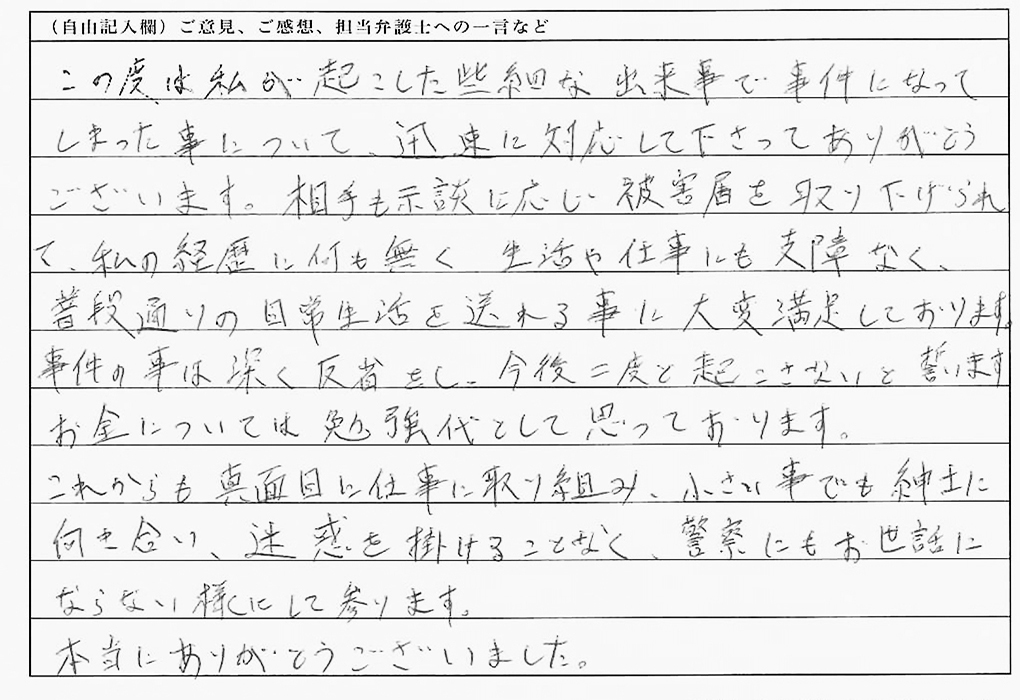 （自由記入欄）ご意見、ご感想、担当弁護士への一言など
この度は私が起こした些細な出来事で事件になって
しまった事について、迅速に対応して下さってありがとう
ございます。相手も示談に応じ被害届を取り下げられ
て、私の経歴に何も無く生活や仕事にも支障なく、
普段通りの日常生活を送れる事に大変満足しております。
事件の事は深く反省をし、今後二度と起こさないと誓います
お金については勉強代として思っております。
これからも真面目に仕事に取り組み、小さい事でも紳士に
向き合い、迷惑を掛けることなく、警察にもお世話に
ならない様にして参ります。
本当にありがとうございました。